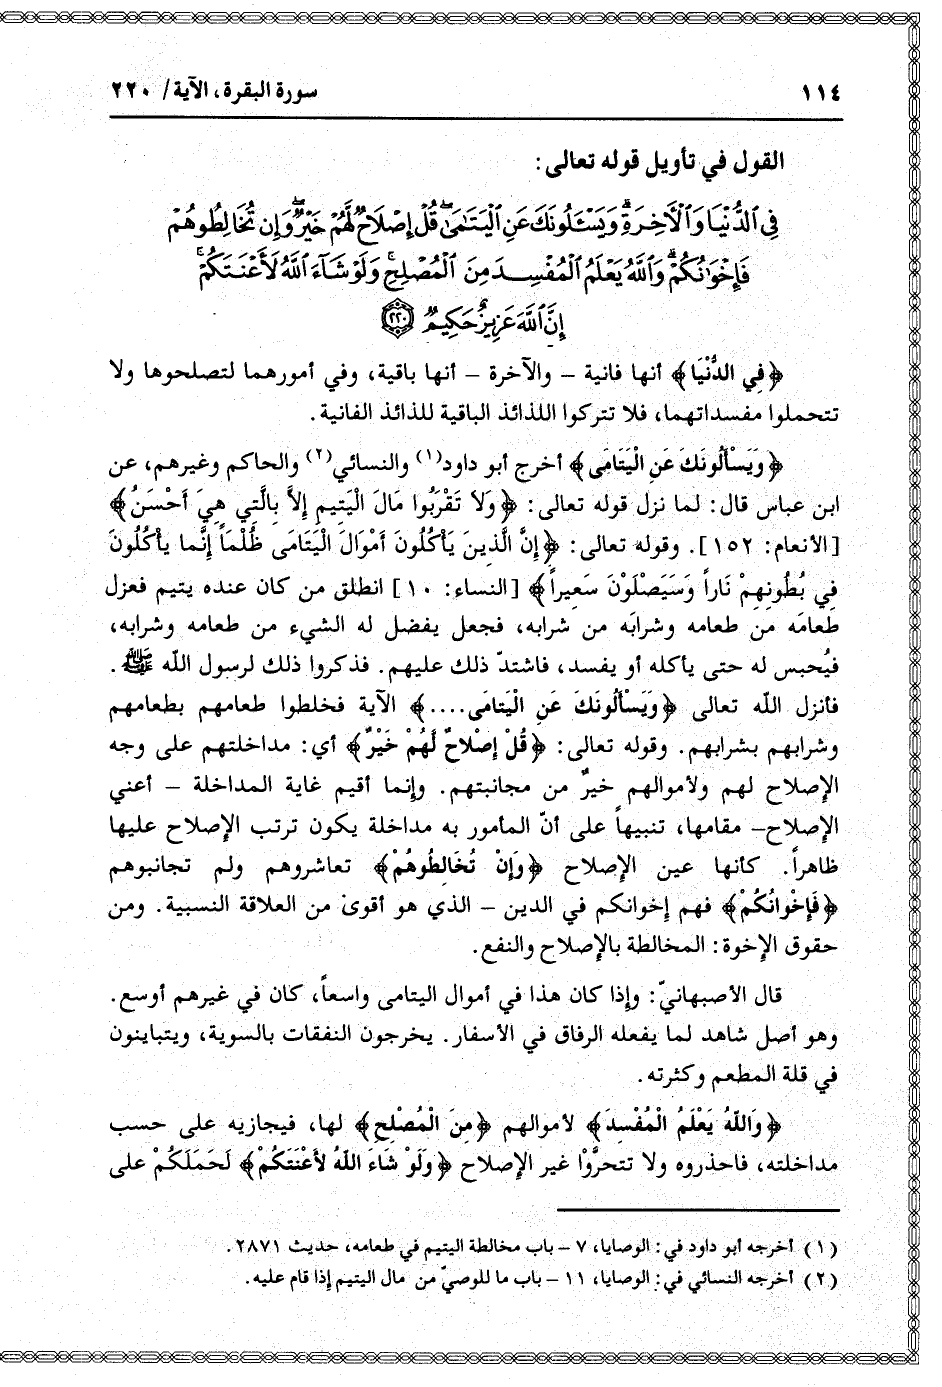 ١١٤ سورة البقرة، الآية/ ٢٢٠
القول في تأويل قوله تعالى:
فِي ٱلدُّنۡيَا وَٱلۡأٓخِرَةِۗ وَيَسۡـَٔلُونَكَ عَنِ ٱلۡيَتَٰمَىٰۖ قُلۡ إِصۡلَاحٞ لَّهُمۡ خَيۡرٞۖ وَإِن تُخَالِطُوهُمۡ
فَإِخۡوَٰنُكُمۡۚ وَٱللَّهُ يَعۡلَمُ ٱلۡمُفۡسِدَ مِنَ ٱلۡمُصۡلِحِۚ وَلَوۡ شَآءَ ٱللَّهُ لَأَعۡنَتَكُمۡۚ
إِنَّ ٱللَّهَ عَزِيزٌ حَكِيمٞ ٢٢٠
﴿فِي الدُّنْيَا﴾ أنها فانية – والآخرة – أنها باقية، وفي أمورهما لتصلحوها ولا
تتحملوا مفسداتهما، فلا تتركوا اللذائذ الباقية للذائذ الفانية.
﴿وَيَسْأَلُونَكَ عَنِ الْيَتَامَى﴾ أخرج أبو داود(١) والنسائي(٢) والحاكم وغيرهم، عن
ابن عباس قال: لما نزل قوله تعالى: ﴿وَلاَ تَقْرَبُوا مَالَ الْيَتِيمِ إِلاَّ بِالَّتِي هِيَ أَحْسَنُ﴾
[الأنعام: ١٥٢]. وقوله تعالى: ﴿إِنَّ الَّذِينَ يَأْكُلُونَ أَمْوَالَ الْيَتَامَى ظُلْمَاً إِنَّما يأْكُلُونَ
فِي بُطُونِهِمْ نَاراً وَسَيَصْلَوْنَ سَعِيراً﴾ [النساء: ١٠] انطلق من كان عنده يتيم فعزل
طعامَه من طعامه وشرابَه من شرابه، فجعل يفضل له الشيء من طعامه وشرابه،
فيُحبس له حتى يأكله أو يفسد، فاشتدّ ذلك عليهم. فذكروا ذلك لرسول اللّه ﷺ.
فأنزل اللّه تعالى ﴿وَيَسْأَلُونَكَ عَنِ الْيَتَامَى....﴾ الآية فخلطوا طعامهم بطعامهم
وشرابهم بشرابهم. وقوله تعالى: ﴿قُلْ إِصْلاحٌ لَهُمْ خَيْرٌ﴾ أي: مداخلتهم على وجه
الإصلاح لهم ولأموالهم خيرٌ من مجانبتهم. وإنما أقيم غاية المداخلة – أعني
الإصلاح– مقامها، تنبيهاً على أنّ المأمور به مداخلة يكون ترتب الإصلاح عليها
ظاهراً. كأنها عين الإصلاح ﴿وَإِنْ تُخَالِطُوهُمْ﴾ تعاشروهم ولم تجانبوهم
﴿فَإِخْوَانُكُمْ﴾ فهم إخوانكم في الدين – الذي هو أقوىْ من العلاقة النسبية. ومن
حقوق الإخوة: المخالطة بالإصلاح والنفع.
قال الأصبهانيّ: وإذا كان هذا في أموال اليتامى واسعاً، كان في غيرهم أوسع.
وهو أصل شاهد لما يفعله الرفاق في الأسفار. يخرجون النفقات بالسوية، ويتباينون
في قلة المطعم وكثرته.
﴿وَاللّهُ يَعْلَمُ الْمُفْسِدَ﴾ لأموالهم ﴿مِنَ الْمُصْلِحِ﴾ لها، فيجازيه على حسب
مداخلته، فاحذروه ولا تتحرَّوْا غير الإصلاح ﴿وَلَوْ شَاءَ اللّهُ لأَعْنَتَكُمْ﴾ لَحَمَلَكُمْ على
(١) أخرجه أبو داود في: الوصايا، ٧ – باب مخالطة اليتيم في طعامه، حديث ٢٨٧١.
(٢) أخرجه النسائي في: الوصايا، ١١ – باب ما للوصيّ من مال اليتيم إذا قام عليه.